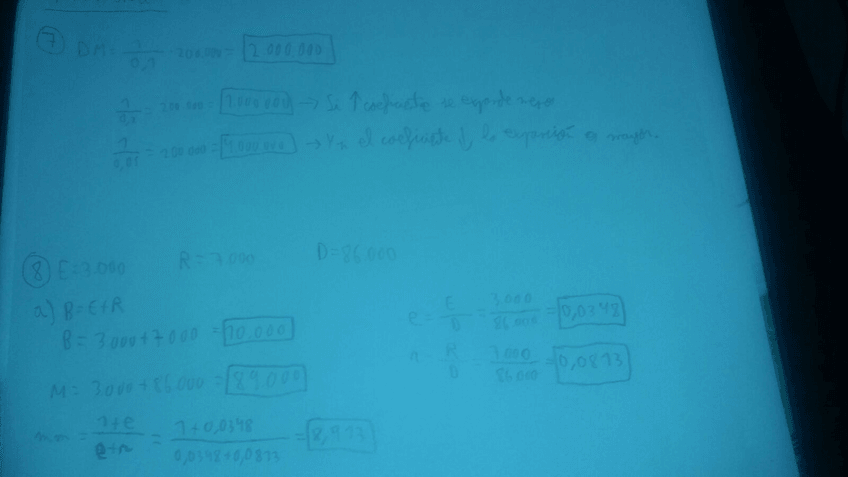 ⑦ DM = 1/0,1 · 200.000 = 2.000.000
= 200.000 = 1.000.000 → Si ↑ coeficiente se expande menos
1/0,05 = 200.000 = 4.000.000 → Y si el coeficiente ↓, la expansión es mayor.
⑧ E = 3.000 R = 7.000 D = 86.000
a) B = E + R
B = 3.000 + 7.000 = 10.000
e = E/D = 3.000/86.000 = 0,0348
M = 3.000 + 86.000 = 89.000
R/D = 7.000/86.000 = 0,0813
mm = 1+e/e+r = 1+0,0348/0,0348+0,0813 = 8,913